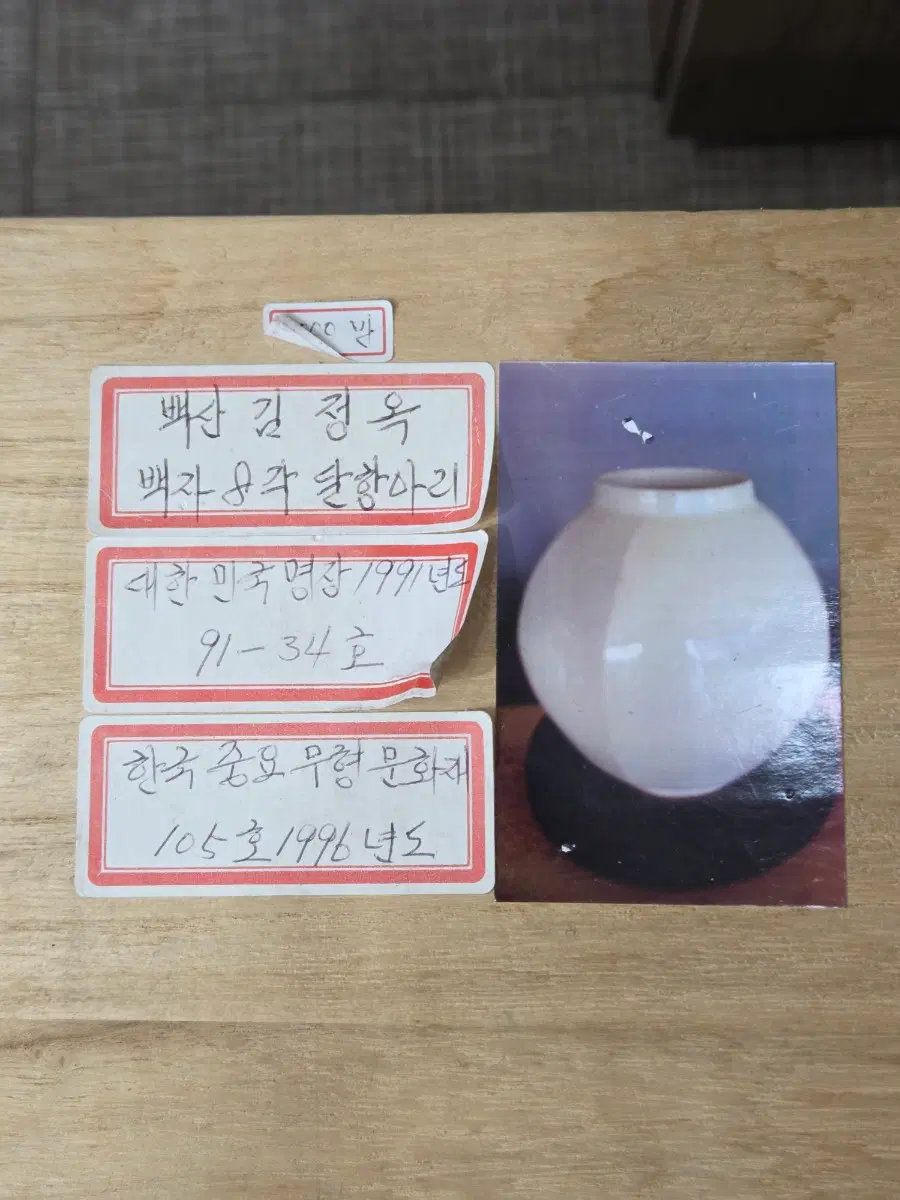 백산 김 정 옥
백자 8각 달항아리
대한민국명장 1991년도
91-34호
한국 중요 무형 문화재
105호 1996년도